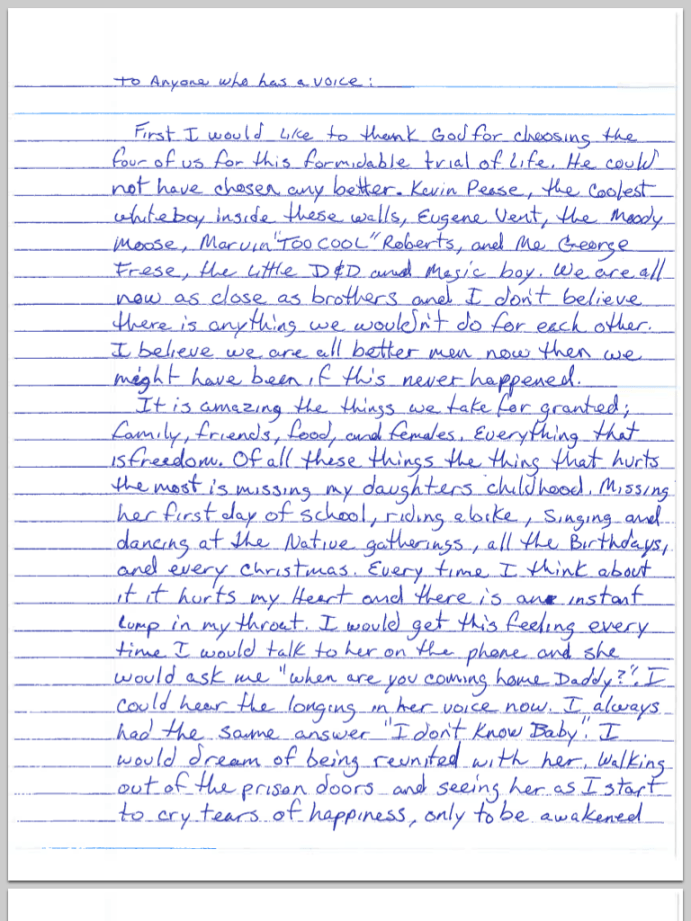 to Anyone who has a voice:
First I would like to thank God for choosing the
four of us for this formidable trial of life. He could
not have chosen any better. Kevin Pease, the coolest
whiteboy inside these walls, Eugene Vent, the Moody
Moose, Marvin "TOO COOL" Roberts, and Me George
Frese, the little D&D and Magic boy. We are all
now as close as brothers and I don't believe
there is anything we wouldn't do for each other.
I believe we are all better men now then we
might have been if this never happened.
It is amazing the things we take for granted;
family, friends, food, and females. Everything that
is freedom. Of all these things the thing that hurts
the most is missing my daughters childhood. Missing
her first day of school, riding a bike, singing and
dancing at the Native gatherings, all the Birthdays,
and every Christmas. Every time I think about
it it hurts my Heart and there is an instant
lump in my throat. I would get this feeling every
time I would talk to her on the phone and she
would ask me "when are you coming home Daddy?". I
could hear the longing in her voice now. I always
had the same answer "I don't know Baby". I
would dream of being reunited with her. Walking
out of the prison doors and seeing her as I start
to cry tears of happiness, only to be awakened